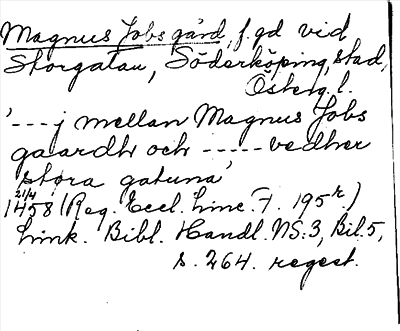 Magnus Jobs gård, f. gd vid
Storgatan, Söderköping, stad,
Österg. l.
'---j mellan Magnus Jobs
gaardh och ----- vedher
støra gatuna'
21/4
1458 (Reg. Eccl. Linc. F. 195 r.)
Link. Bibl. Handl. NS:3, Bil. 5,
s. 264. regest.